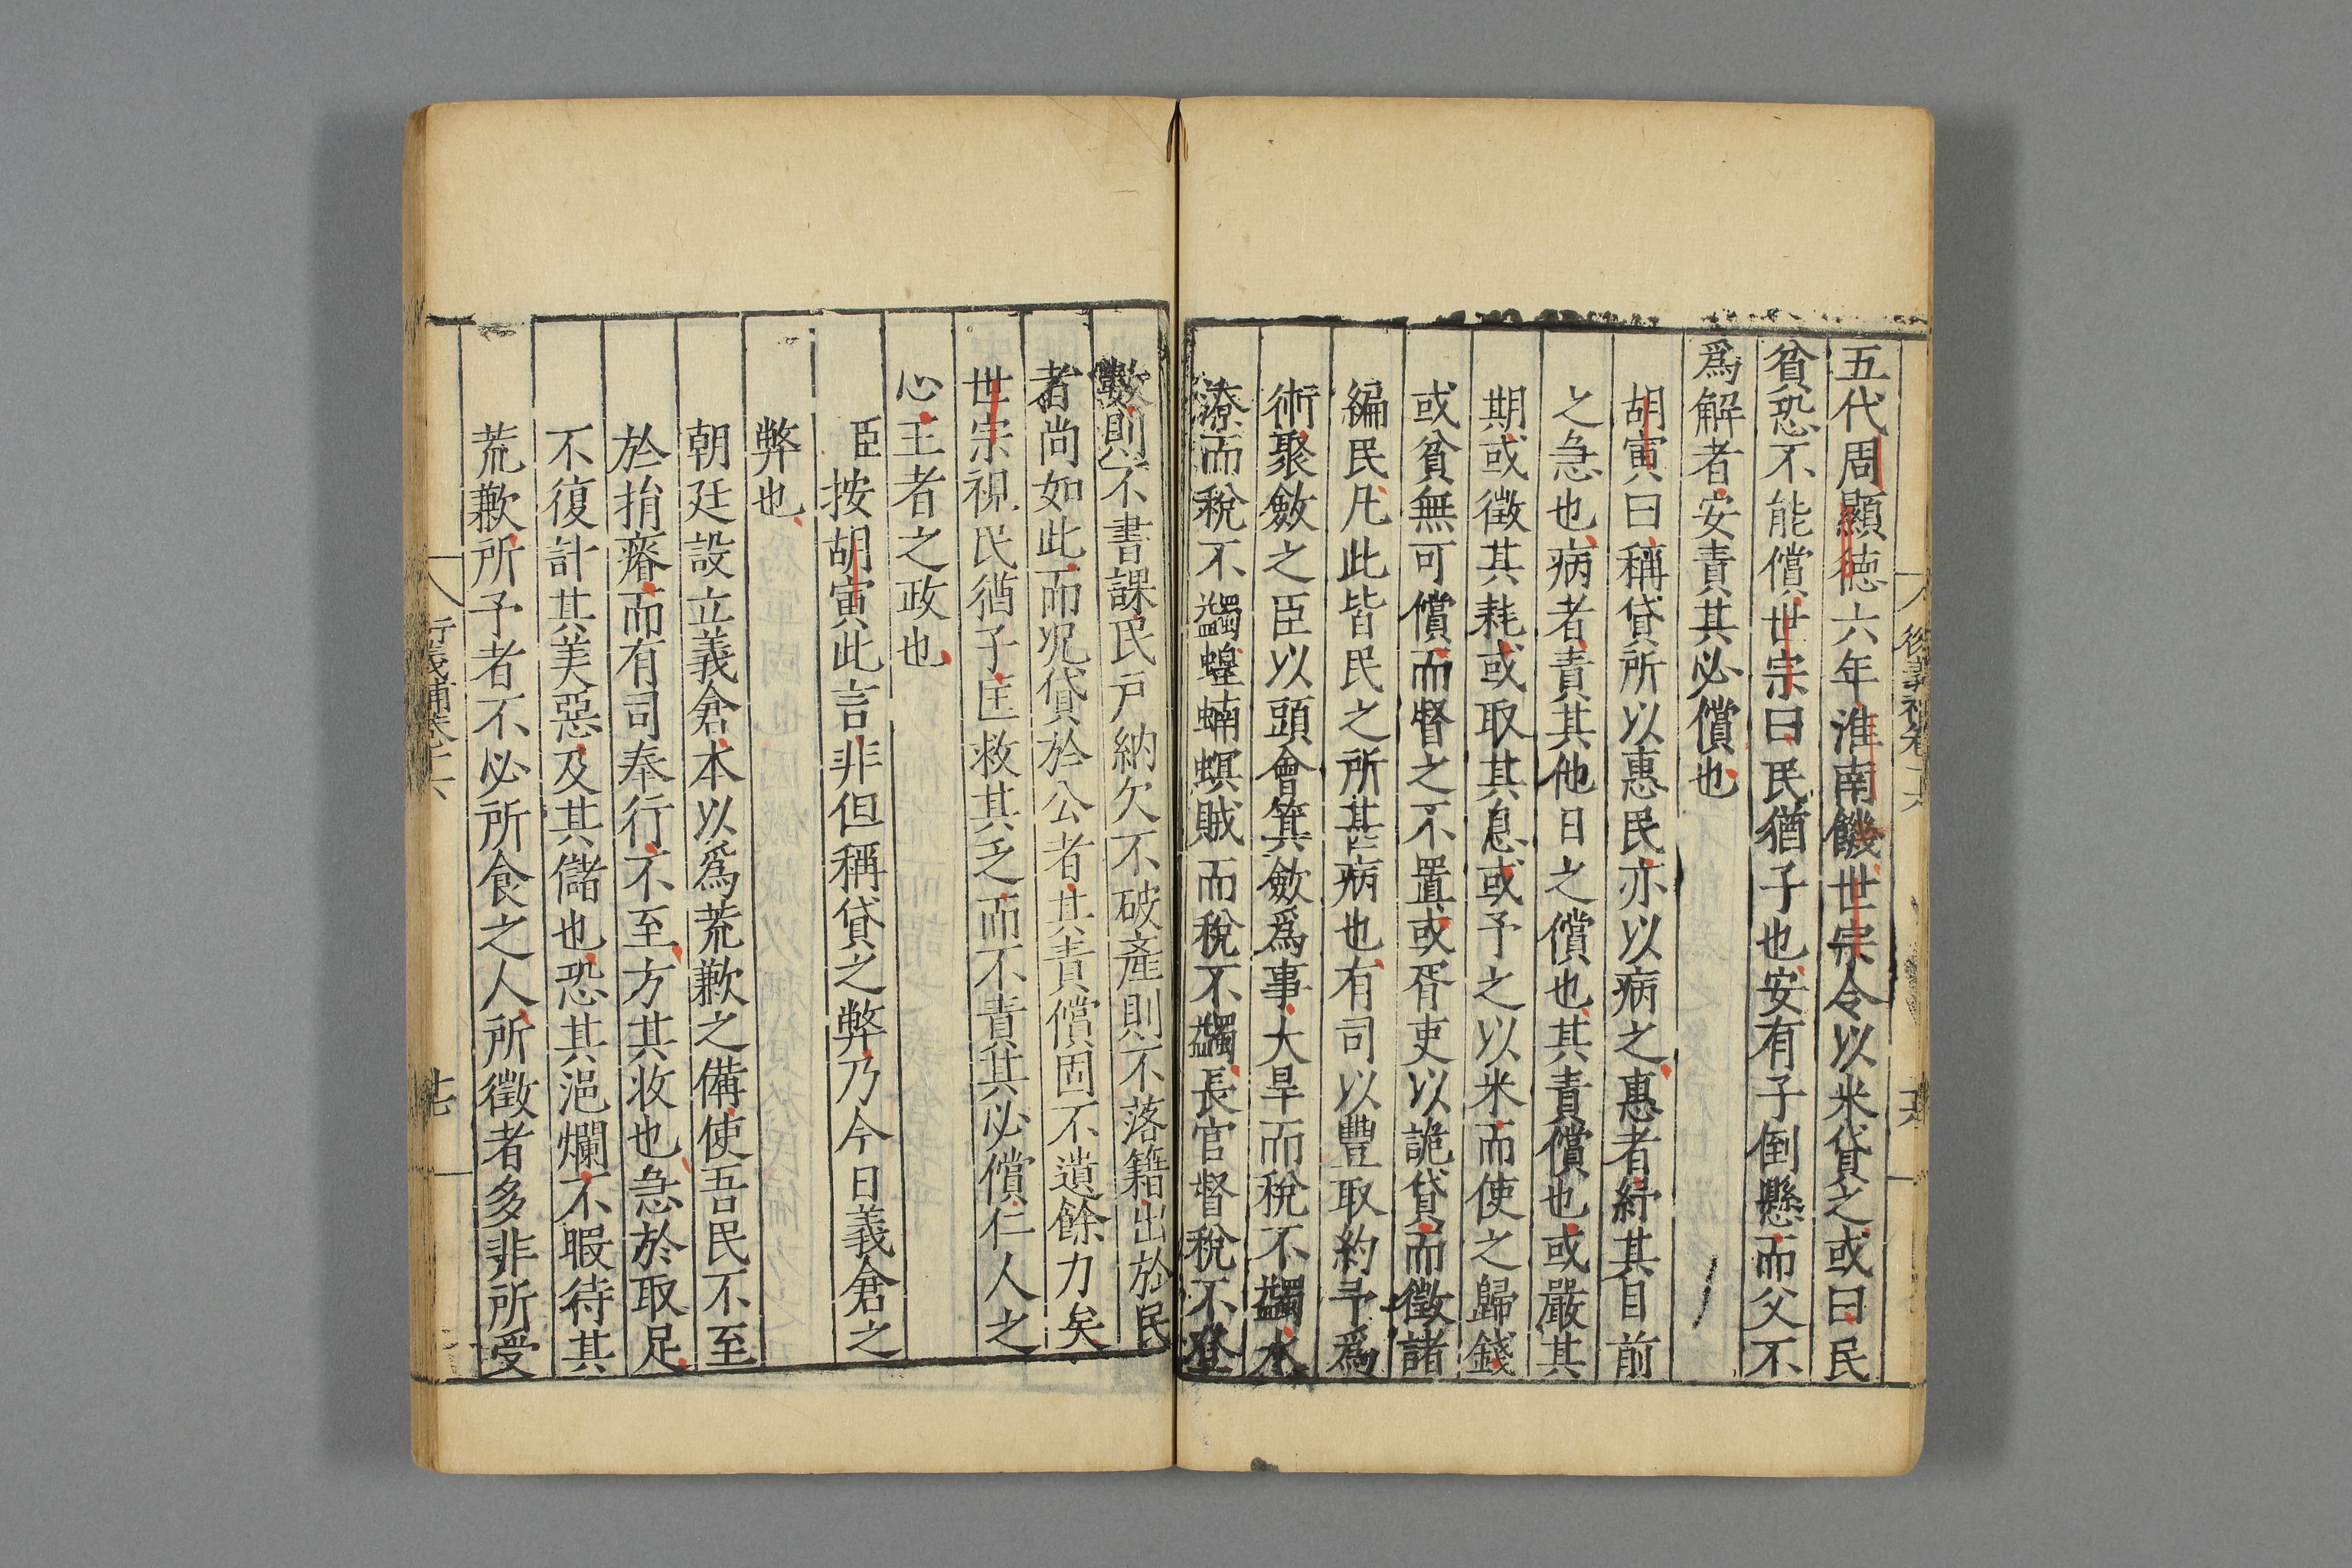 五代周顯德六年淮南饑世宗令以米貸之或曰民
貧恐不能償世宗曰民猶子也安有子倒懸而父不
爲解者安責其必償也
胡寅曰稱貸所以惠民亦以病之惠者紓其目前
之急也病者責其他日之償也其責償也或嚴其
期或徵其耗或取其息或予之以米而使之歸錢
或貧無可償而督之不置或胥吏以詭貸而徵諸
編民凡此皆民之所甚病也有司以豐取約予爲
術聚斂之臣以頭會箕斂爲事大旱而稅不蠲水
潦而稅不蠲蝗蝻螟賊而稅不蠲長官督稅不登
數則不書課民戶納欠不破產則不落籍出於民
者尚如此而况貸於公者其責償固不遺餘力矣
世宗視民猶子匡救其乏而不責其必償仁人之
心王者之政也
臣按胡寅此言非但稱貸之弊乃今日義倉之
弊也
朝廷設立義倉本以爲荒歉之備使吾民不至
於捐瘠而有司奉行不至方其收也急於取足
不復計其美惡及其儲也恐其浥爛不暇待其
荒歉所予者不必所食之人所徵者多非所受
衍義補卷十六
十七